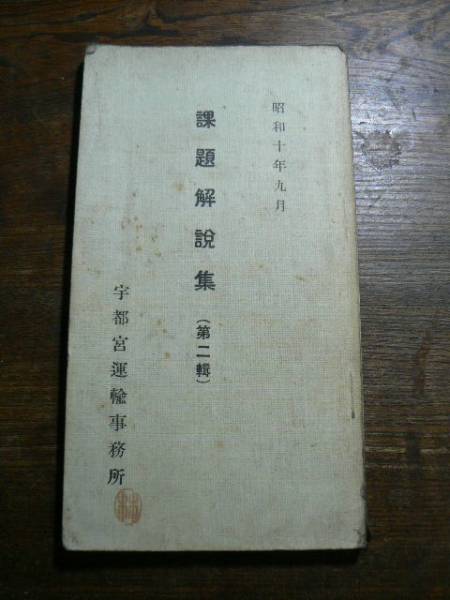 昭和十年九月
課題解說集（第二輯）
宇都宮運輸事務所